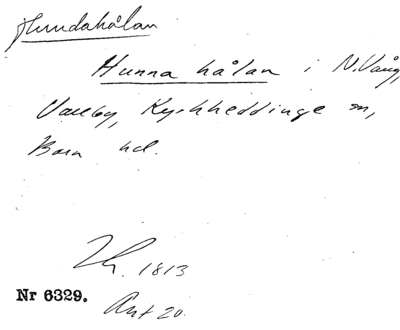 Hundahålan
Hunna hålan i N. Vång,
Valleby, Kyrkheddinge sn,
Bara hd.
1813
Nr 6329.
Akt 20.